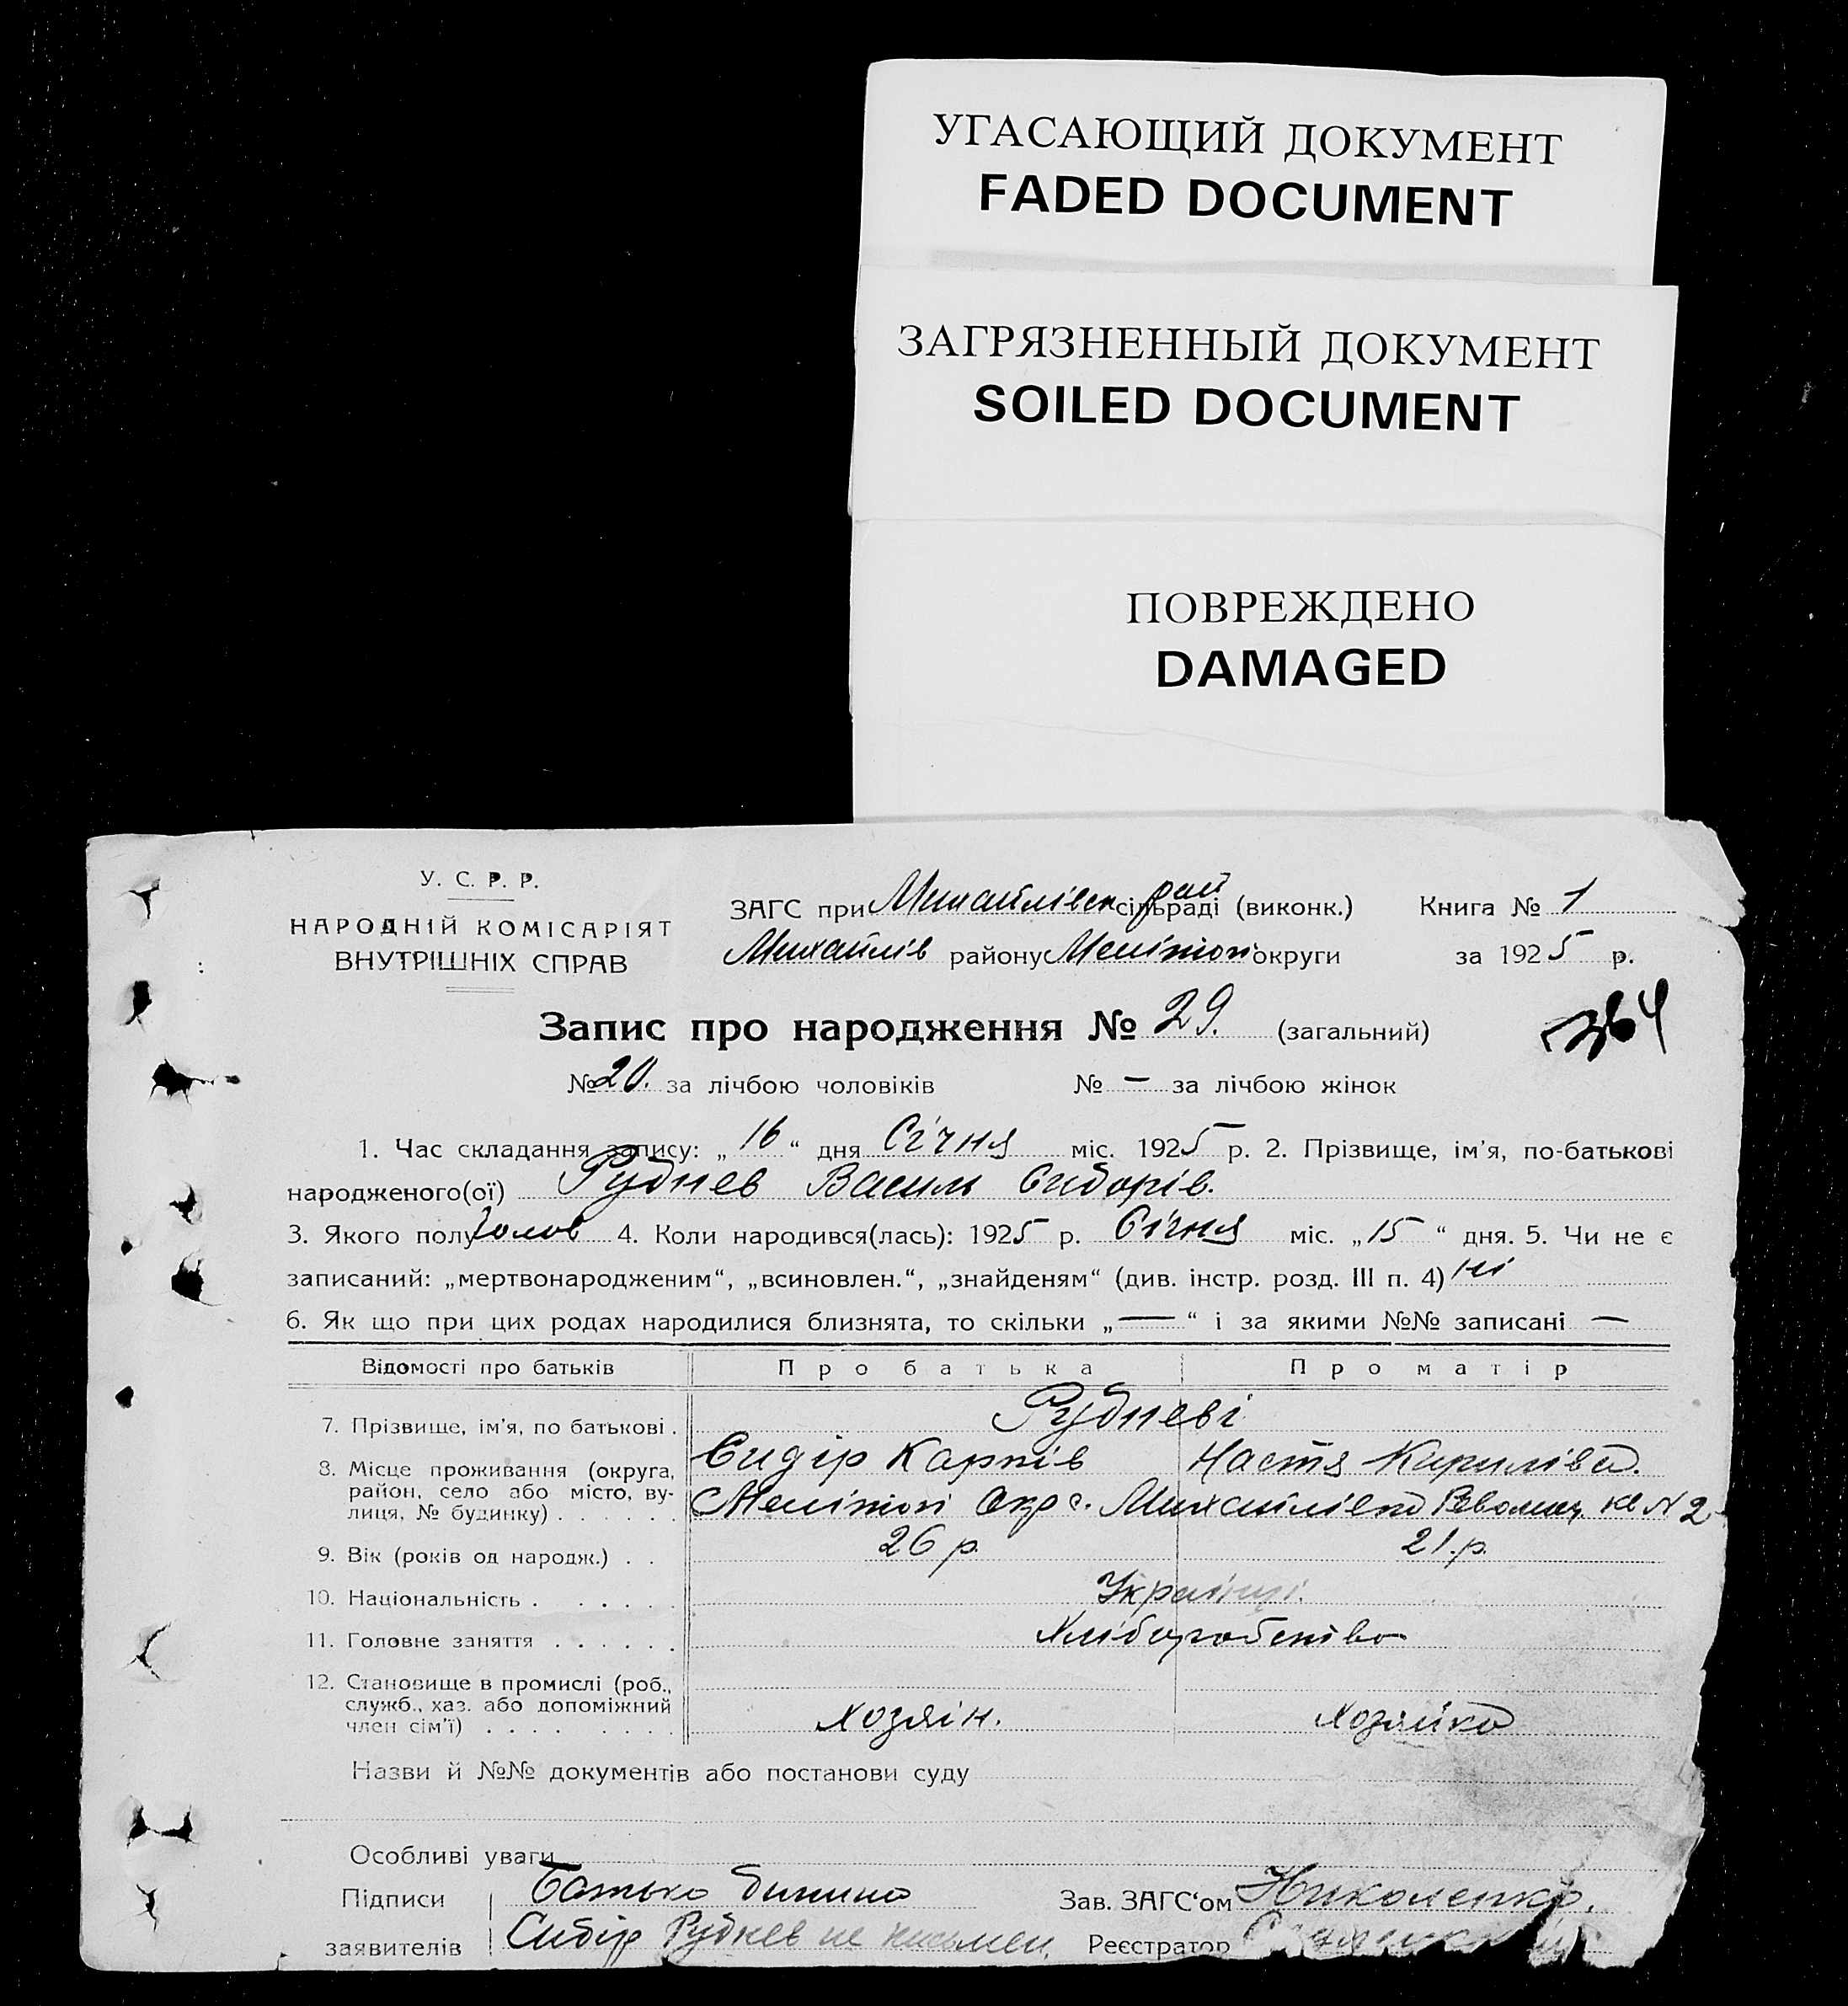 УГАСАЮЩИЙ ДОКУМЕНТ
FADED DOCUMENT
ЗАГРЯЗНЕННЫЙ ДОКУМЕНТ
SOILED DOCUMENT
ПОВРЕЖДЕНО
DAMAGED
У. С. Р. Р.
НАРОДНІЙ КОМІСАРІЯТ
ВНУТРІШНІХ СПРАВ
ЗАГС при Михайлівск рай сільраді (виконк.) Книга № 1
Михайлів району Мелітоп округи за 1925 р.
Запис про народження № 29. (загальний)
364
№ 20. за лічбою чоловіків № — за лічбою жінок
1. Час складання запису: „16“ дня Січня міс. 1925 р. 2. Прізвище, ім'я, по-батькові
народженого(ої) Руднев Василь Сидорів.
3. Якого полу Чолов 4. Коли народився(лась): 1925 р. Січня міс. „15“ дня. 5. Чи не є
записаний: „мертвонародженим“, „всиновлен.“, „знайденям“ (див. інстр. розд. III п. 4) ні
6. Як що при цих родах народилися близнята, то скільки „—“ і за якими №№ записані —
Відомості про батьків Про батька Про матір
7. Прізвище, ім'я, по батькові . Рудневі
Сидір Карпів Настя Кирилівна.
8. Місце проживання (округа,
район, село або місто, ву-
лиця, № будинку) . . . . . . Мелітоп Окр с. Михайлівка Революц. кв N 2
9. Вік (років од народж.) . . 26 р. 21.р.
10. Національність . . . . . . Українці.
11. Головне заняття . . . . . . Хліборобство
12. Становище в промислі (роб.,
служб., хаз. або допоміжний
член сім'ї) . . . . . . . . Хозяін. Хозяйка
Назви й №№ документів або постанови суду
Особливі уваги
Підписи Батько дитини Зав. ЗАГС'ом Николенко.
заявителів Сидір Руднев не письмен. Реєстратор